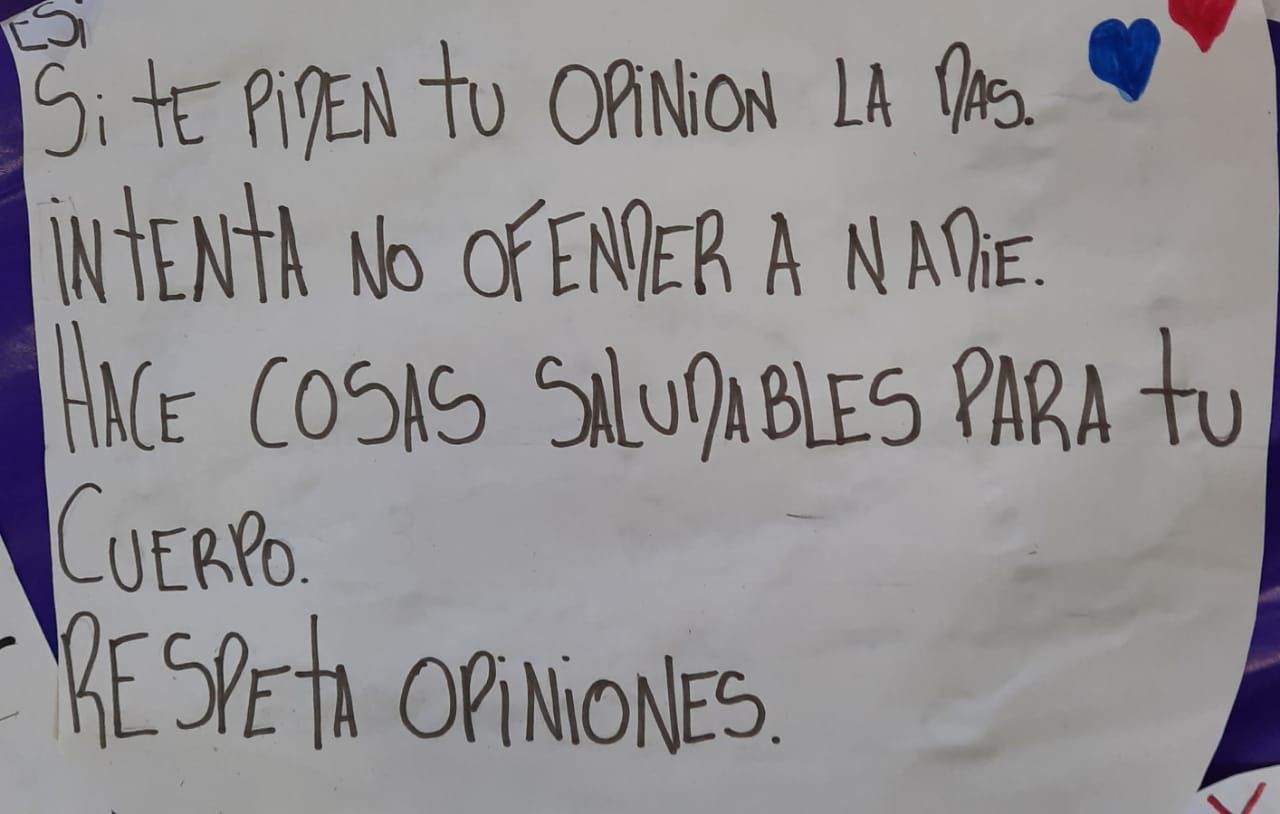 ESi
Si tE PiDEN tU OPiNiON LA DAS.
iNtENtA NO OFENDER A NADiE.
HACE COSAS SALUDABLES PARA tU
CUERPO.
RESPEtA OPiNiONES.